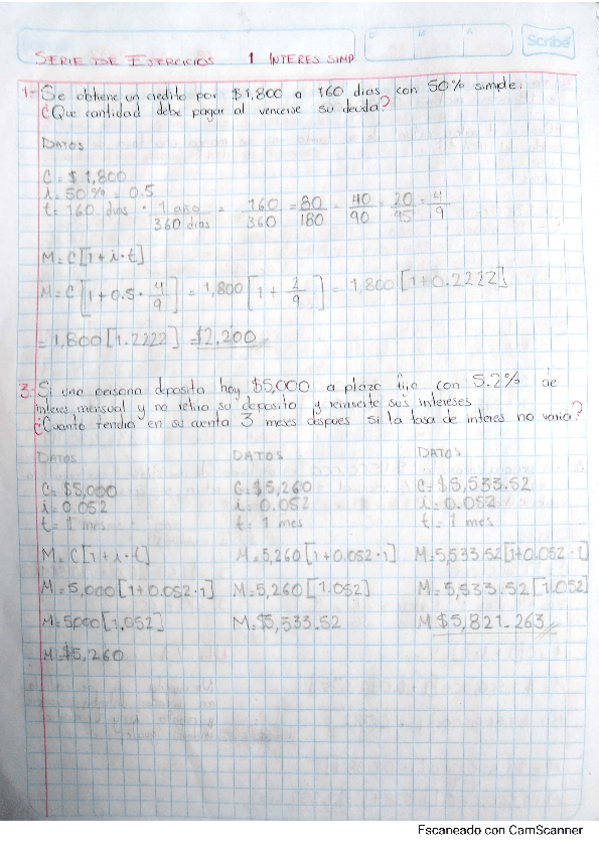 D M A
Scribe
SERIE DE EJERCICIOS 1 INTERES SIMP
1.- Se obtiene un credito por $1,800 a 160 dias con 50% simple.
¿Que cantidad debe pagar al vencerse su deuda?
DATOS
C = $1,800
i = 50% = 0.5
t = 160 dias · 1 año / 360 dias = 160/360 = 80/180 = 40/90 = 20/45 = 4/9
M = C[1+i·t]
M = C[1+0.5·4/9] = 1,800[1+2/9] = 1,800[1+0.2222]
= 1,800[1.2222] = $2,200
3.- Si una persona deposita hoy $5,000 a plazo fijo con 5.2% de
interes mensual y no retira su deposito y reinvierte sus intereses
¿Cuanto tendra en su cuenta 3 meses despues si la tasa de interes no varia?
DATOS DATOS DATOS
C = $5,000 C = $5,260 C = $5,533.52
i = 0.052 i = 0.052 i = 0.052
t = 1 mes t = 1 mes t = 1 mes
M = C[1+i·t] M = 5,260[1+0.052·1] M = 5,533.52[1+0.052·1]
M = 5,000[1+0.052·1] M = 5,260[1.052] M = 5,533.52[1.052]
M = 5000[1.052] M = $5,533.52 M $5,821.263
M $5,260
Escaneado con CamScanner